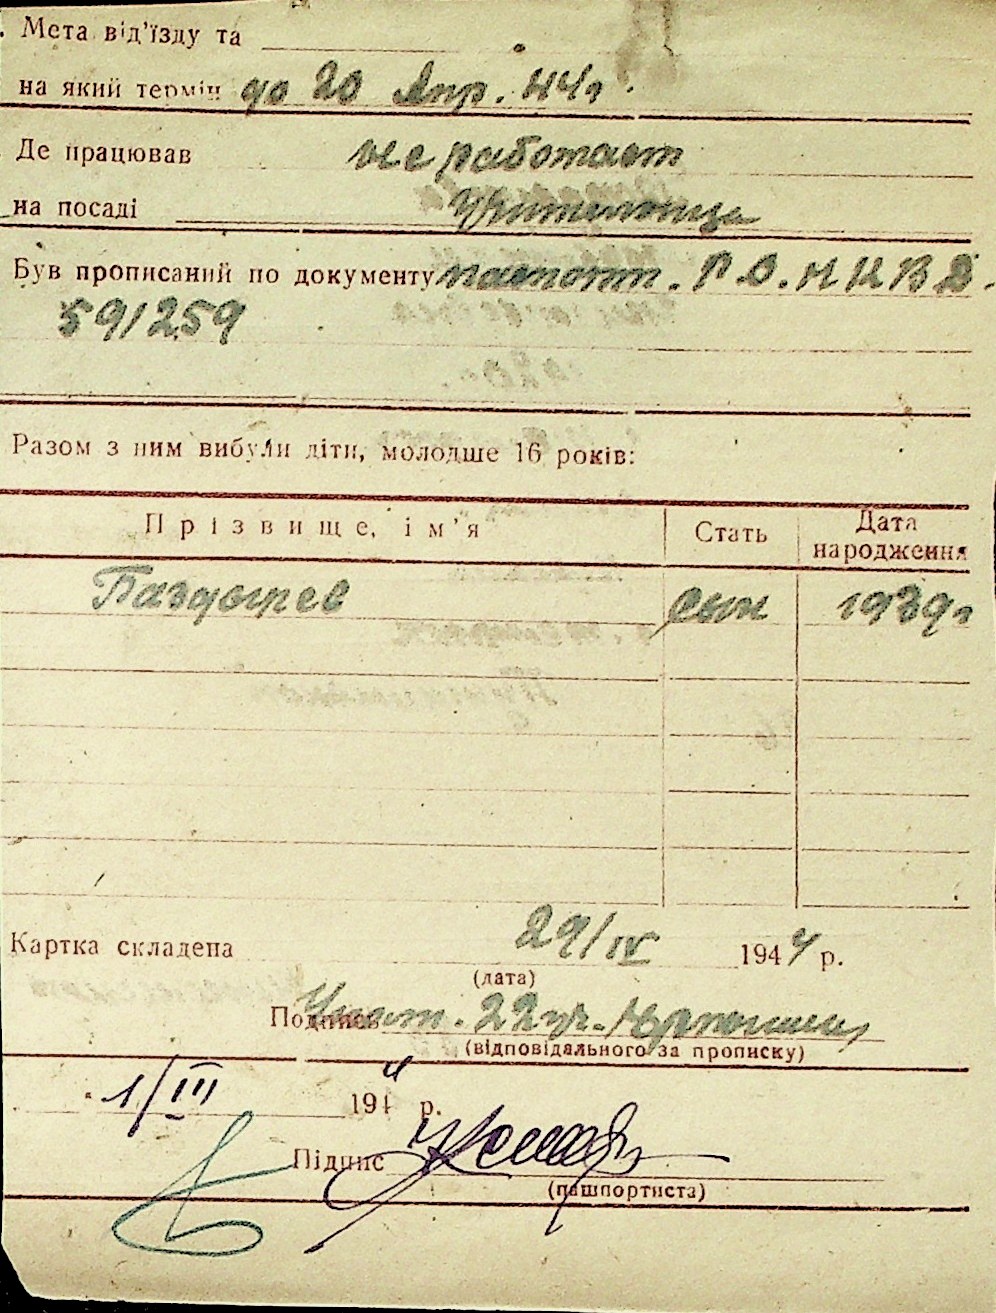 . Мета від'їзду та
на який термін до 20 Апр. 44г.
Де працював не работает
на посаді Учительница
Був прописаний по документу паспорт. Р О. Н К В Д.
591259
Разом з ним вибули діти, молодше 16 років:
Прізвище, ім'я Стать Дата народження
Паздырев сын 1939г
Картка складена 29/IV 1944 р.
(дата)
Подпись Участ. 22
(відповідального за прописку)
1/III 1944 р.
Підпис
(пашпортиста)